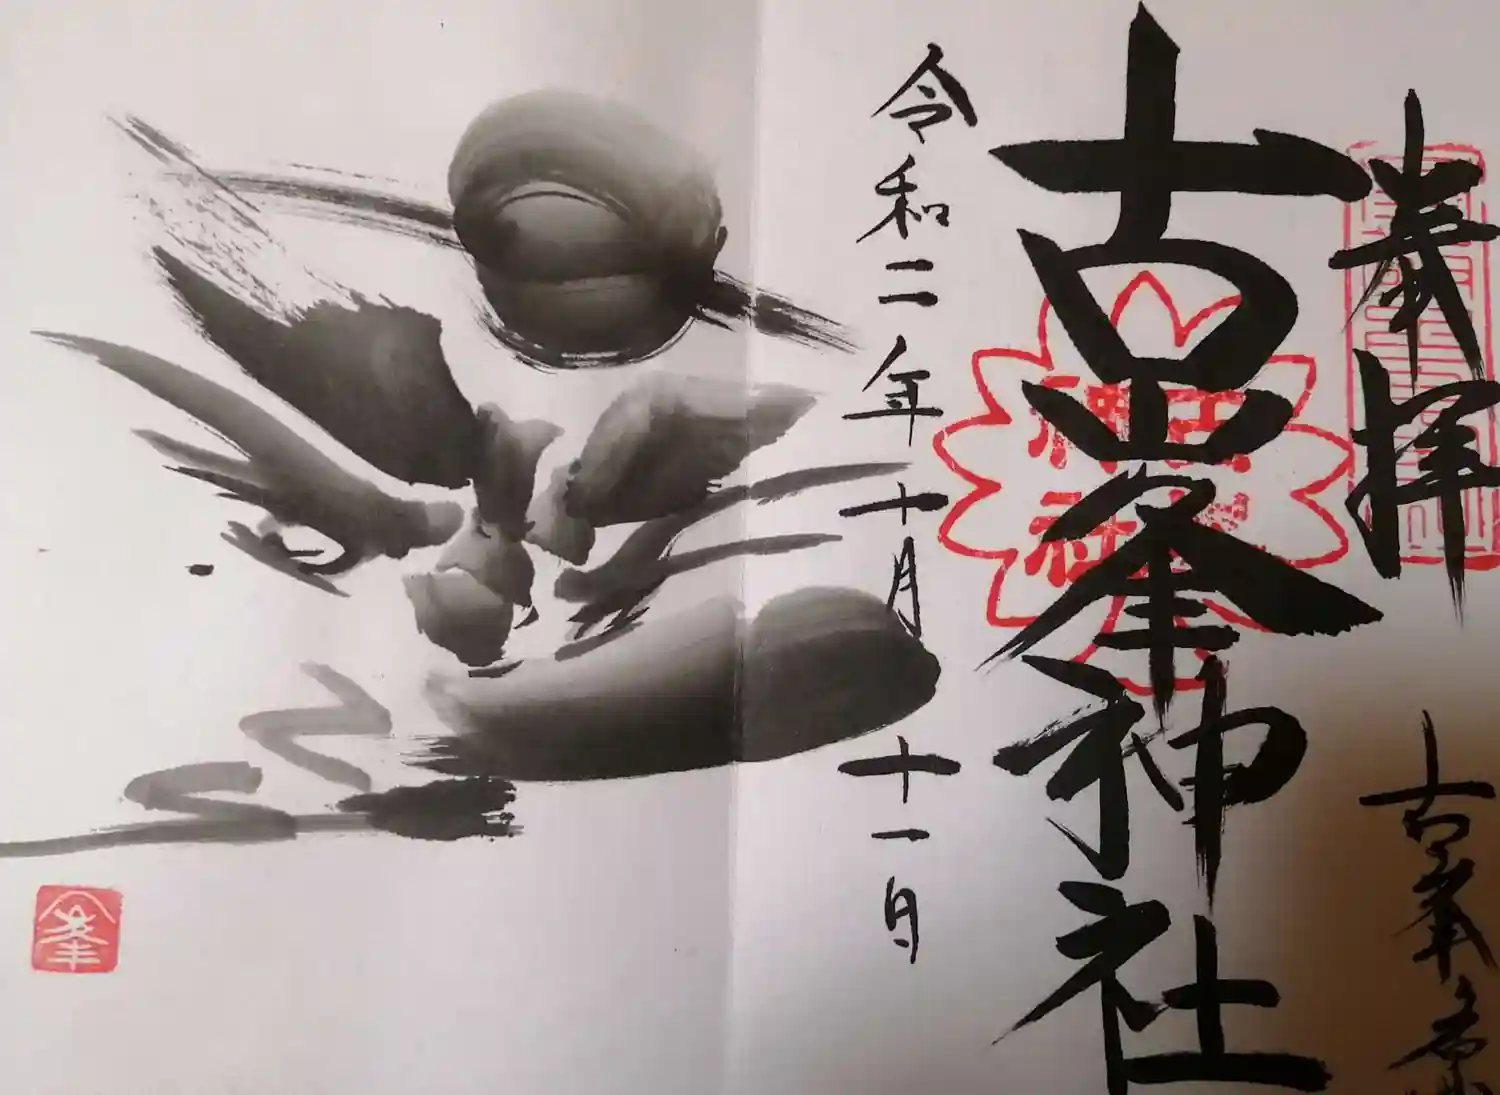 奉拝
古峯
古峯神社
令和二年十月十一日
峯